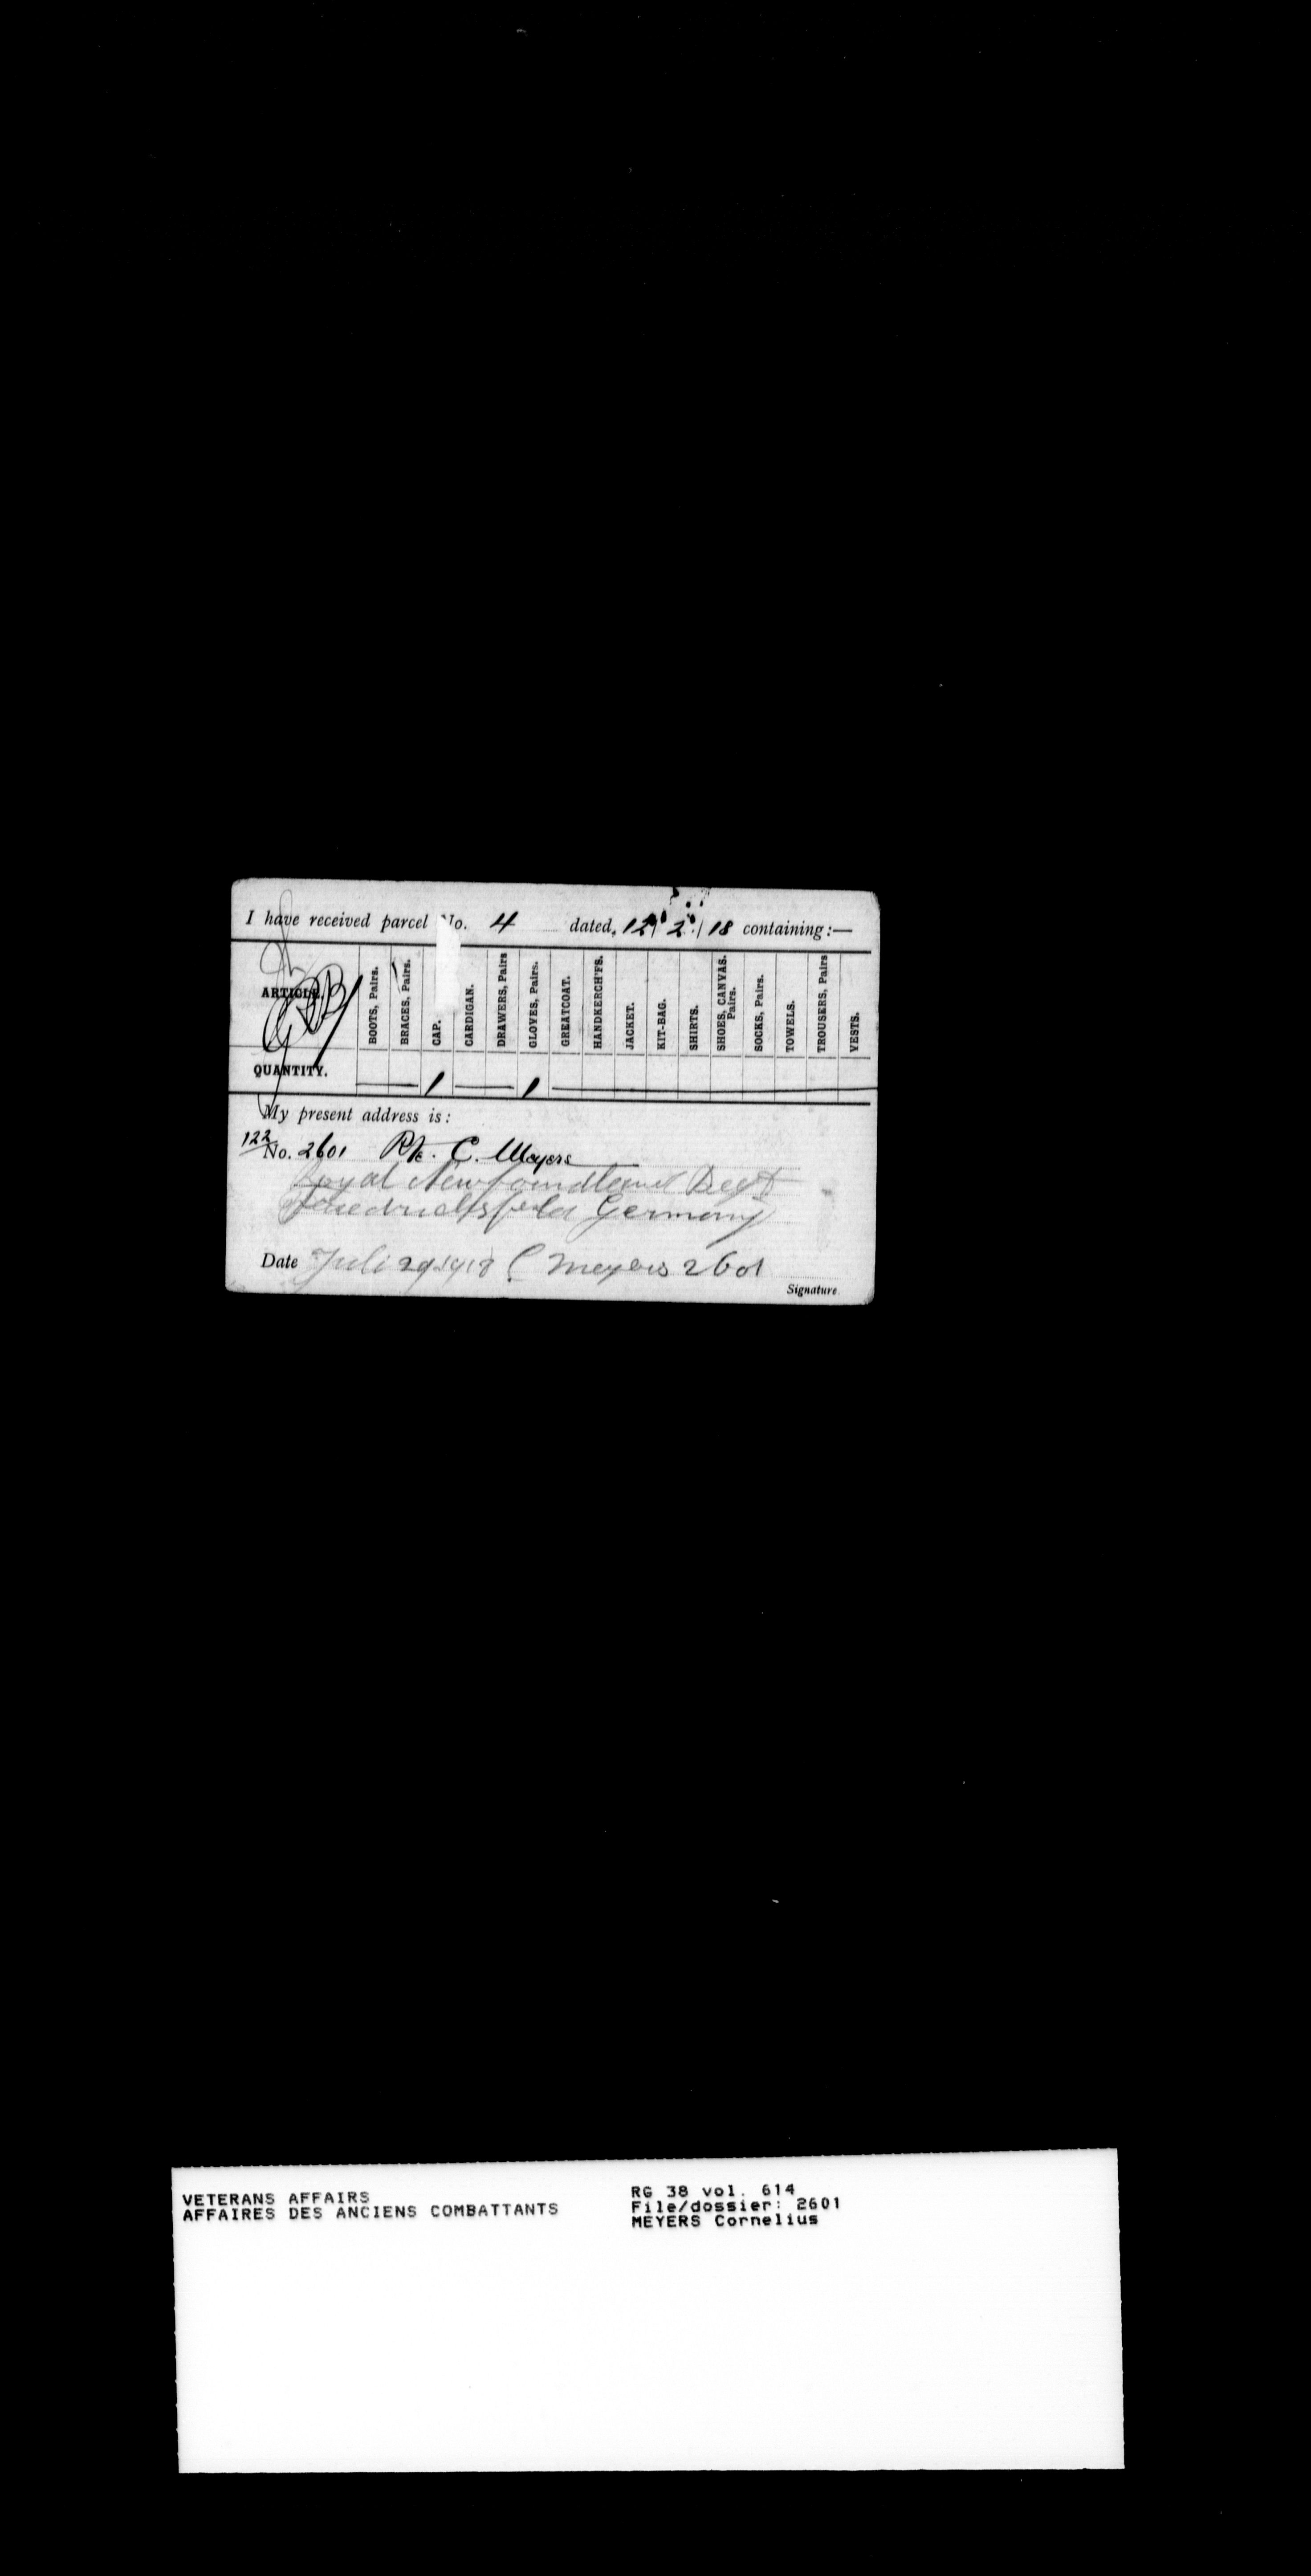 I have received parcel No. 4 dated, 12/2/18 containing:—
ARTICLE. BOOTS, Pairs. BRACES, Pairs. CAP. CARDIGAN. DRAWERS, Pairs GLOVES, Pairs. GREATCOAT. HANDKERCH'FS. JACKET. KIT-BAG. SHIRTS. SHOES, CANVAS. Pairs. SOCKS, Pairs. TOWELS. TROUSERS, Pairs VESTS.
QUANTITY. — 1 — 1 —
My present address is:
122
No. 2601 Pte. C. Meyers
Royal Newfoundland Regt
Friedrichsfeld Germany
Date Juli 29 1918 C Meyers 2601
Signature.
VETERANS AFFAIRS
AFFAIRES DES ANCIENS COMBATTANTS
RG 38 vol. 614
File/dossier: 2601
MEYERS Cornelius